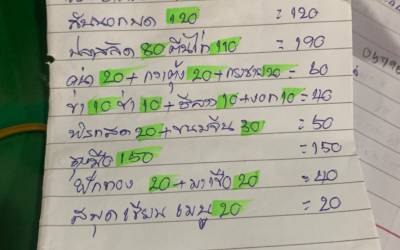 สับนอกมด 120 = 120
ปลาสลิด 80 ตีนไก่ 110 = 190
20 + กวางตุ้ง 20 + กระชาย 20 = 60
ข่า 10 ช่า 10 + 10 + งอก 10 = 40
พริกสด 20 + ขนมจีน 30 = 50
150 = 150
ฟักทอง 20 + มาเขือ 20 = 40
สมุดเขียน เมนู 20 = 20